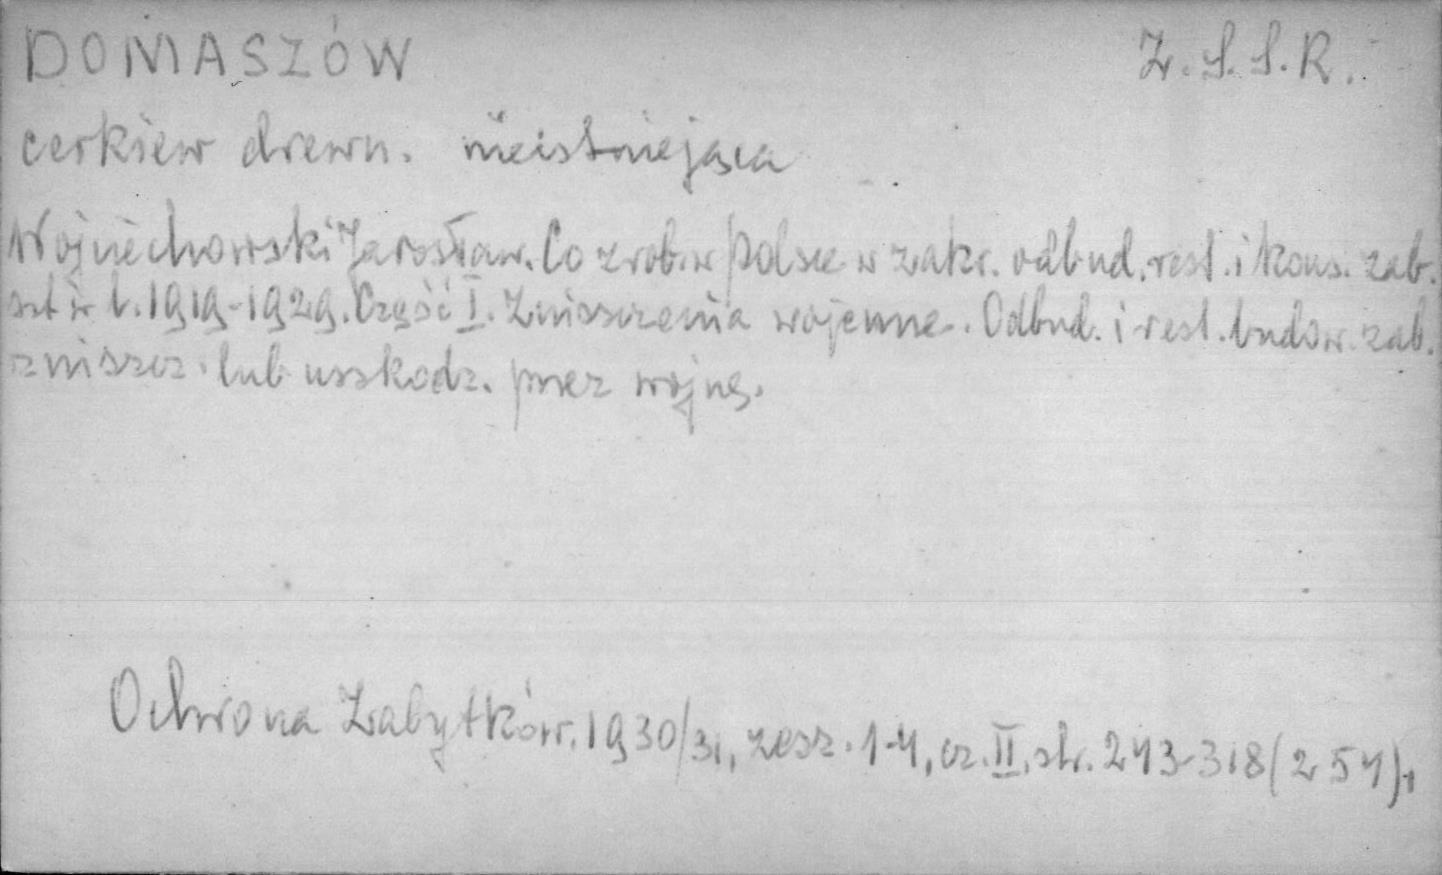 DOMASZÓW Z.S.S.R.
cerkiew drewn. nieistniejąca
Wojciechowski Jarosław. Co zrob. w Polsce w zakr. odbud. rest. i kons. zab.
szt. w l. 1919-1929. Część I. Zniszczenia wojenne. Odbud. i rest. budow. zab.
zniszcz. lub uszkodz. przez wojnę.
Ochrona Zabytków. 1930/31, zesz. 1-4, cz. II, str. 243-318 (254),